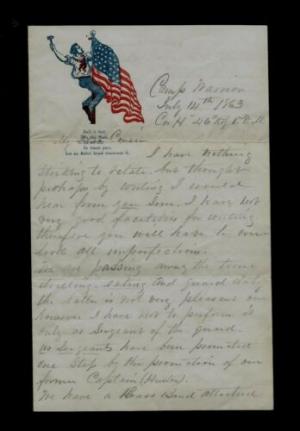 Camp Warrior
July 14th 1863
Co. H. 46th Reg
My Cousin
I have nothing
striking to relate. But thought
perhaps by writing I would
hear from you soon. I have not
very good facilities for writing
therefore you will have to over-
look all imperfections.
We are passing away the time
drilling, eating and guard duty
the latter is not very pleasant one
however I have not to perform it
only as Sergeant of the guard.
us Sergeants have been promoted
one step by the promotion of our
former Captain
We have a Brass Band attached